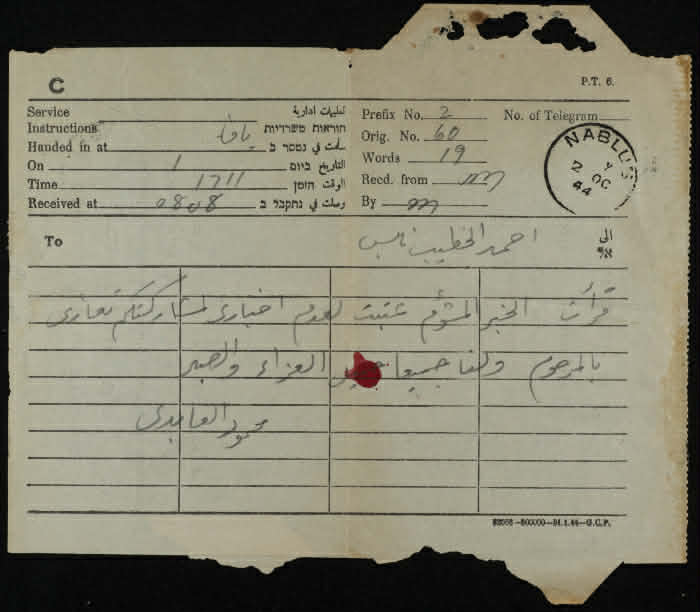 C
P.T. 6.
Service تعليمات ادارية
Instructions הוראות משרדיות
Handed in at يافا سلمت في נמסר ב
On 1 التاريخ ביום
Time 1711 الوقت הזמן
Received at 0808 وصلت في נתקבל ב
Prefix No. 2 No. of Telegram
Orig. No. 60
Words 19
Recd. from
By
NABLUS
2 OC
44
To احمد الخطيب نابلس الى
אל
قرأت الخبر المشؤم عتبت لعدم اخباري لمشاركتكم تعازي
بالمرحوم ولنا جميعا العزاء والصبر
محمود العابدي
500000-24.1.44-G.C.P.